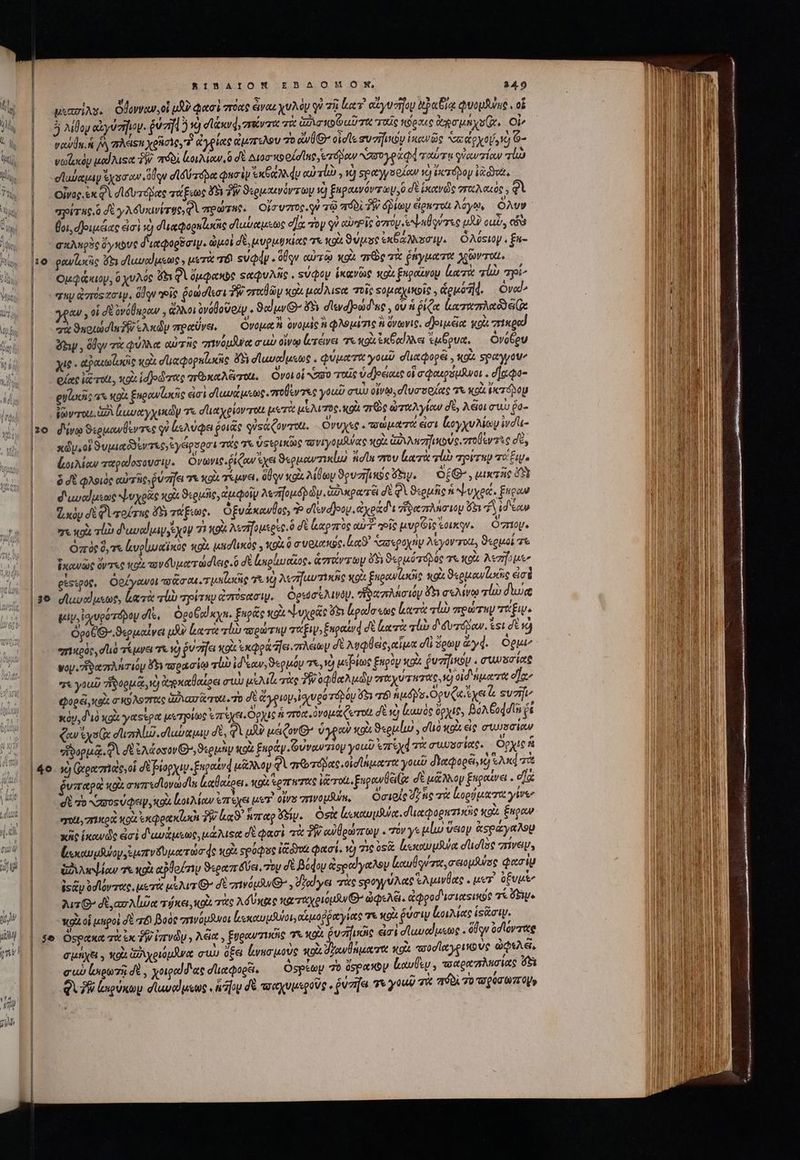 ΒΙΒΛΙΟΝ ΕΒΔΟΜΟΝ. 249
Ὀθοννα, οἱ μὲν φασὶ πόας εἶναι χυλὸν ἐν τῇ κατ' αἴγυπτον ἀραβίᾳ φυομένης. οἱ
δὲ λίθον αἰγύπτιον. ῥύπτει δὲ καὶ δάκνει, πάντα τὰ ἐπισκοτοῦντα ταῖς κόραις ἀποσμήχουσα. Οἰ-
νάνθη, ἡ πλείστη χρῆσις, τῆς ἀγρίας ἀμπέλου τὸ ἄνθος οἶδε στυπτικὸν ἱκανῶς ὑπάρχον, καὶ
μάλιστα τῶν περὶ κοιλίαν, ὁ δὲ Διοσκορίδης, ἑτέραν ὑπογράφει ταύτῃ ἐναντίαν τὴν
δύναμιν ἔχουσαν, ὅθεν δεύτερα φησὶν ἐκβάλλειν αὐτὴν, καὶ στραγγουρίαν καὶ ἴκτερον ἰᾶσθαι.
Οἶνος, ἐκ τῆς δευτέρας τάξεως ἐστὶ τῶν θερμαινόντων καὶ ξηραινόντων, ὁ δὲ ἱκανῶς παλαιὸς, τῆς
τρίτης, ὁ δὲ γλευκινίτης, τῆς πρώτης. Οἴσυπος, ἐν τῷ περὶ τῶν ἐρίων εἴρηται λόγῳ. Ὄλυν-
θοι, δριμείας εἰσὶ καὶ διαφορητικῆς δυνάμεως διὰ τὸν ἐν αὐτοῖς ὀπόν. ἑψηθέντες μὲν οὖν, τοὺς
σκληροὺς ὄγκους διαφοροῦσιν. ὠμοὶ δὲ, μυρμηκίας τε καὶ θύμους ἐκβάλλουσιν. Ὀλόστιον, ξη-
10 ραντικῆς ἐστὶ δυνάμεως, μετὰ τοῦ στύφειν. ὅθεν αὐτῷ καὶ πρὸς τὰ ῥήγματα χρῶνται.
Ὀμφάκιον, ὁ χυλός ἐστι τῆς ὄμφακος σταφυλῆς. στῦφον ἱκανῶς καὶ ξηραῖνον κατὰ τὴν τρί-
την ἀπόστασιν. ὅθεν τοῖς ῥοώδεσι τῶν παθῶν καὶ μάλιστα τοῖς στομαχικοῖς, ἁρμόττει. Ὀνα-
γραν, οἱ δὲ ὀνόθηραν, ἄλλοι ὀνόθουριν. θάμνος ἐστὶ δενδρώδης, οὗ ἡ ῥίζα καταπλασθεῖσα
τὰ θηριώδη τῶν ἑλκῶν πραΰνει. Ὄνομα ἢ ὀνομὶς ἢ φλομῖτις ἢ ὄνωνις, δριμεῖα καὶ πικρὰ
ἐστιν, ὅθεν τὰ φύλλα αὐτῆς πινόμενα σὺν οἴνῳ κτείνει τε καὶ ἐκβάλλει ἔμβρυα. Ὀνόβρυ-
χις, ἀραιωτικῆς καὶ διαφορητικῆς ἐστὶ δυνάμεως. φύματα γοῦν διαφορεῖ, καὶ στραγγου-
ρίας ἰᾶται, καὶ ἱδρῶτας προκαλεῖται. Ὄνοι οἱ ὑπὸ τοὺς ὑδρείας οἱ σφαιρούμενοι. διαφο-
ρητικῆς τε καὶ ξηραντικῆς εἰσὶ δυνάμεως. ποθέντες γοῦν σὺν οἴνῳ, δυσουρίας τε καὶ ἴκτερον
ἰῶνται. ἐπὶ κυναγχικῶν τε διαχρίονται μετὰ μέλιτος, καὶ πρὸς ὠταλγίαν δὲ, λεῖοι σὺν ῥο-
20 δίνῳ θερμανθέντες ἐν κελύφει ῥοιᾶς ἐνστάζονται. Ὄνυχες, πώματά εἰσι κογχυλίων ἰνδι-
κῶν, οἳ θυμιαθέντες, ἐγείρουσι τάς τε ὑστερικῶς πνιγομένας καὶ ἐπιληπτικούς. ποθέντες δὲ,
κοιλίαν ταράσσουσιν. Ὄνωνις, ῥίζαν ἔχει θερμαντικὴν ἤδη που κατὰ τὴν τρίτην τάξιν.
ὁ δὲ φλοιὸς αὐτῆς, ῥύπτει τε καὶ τέμνει, ὅθεν καὶ λίθων θρυπτικός ἐστιν. Ὄξος, μικτῆς ἐστὶ
δυνάμεως ψυχρᾶς καὶ θερμῆς, ἀμφοῖν λεπτομερῶν, ἐπικρατεῖ δὲ τῆς θερμῆς ἡ ψυχρά. ξηραν-
τικὸν δὲ τῆς τρίτης ἐστὶ τάξεως. Ὀξυάκανθος, τὸ δένδρον, ἀχράδι παραπλήσιον ἐστὶ τὴν ἰδέαν
τε καὶ τὴν δύναμιν, ἔχον τι καὶ λεπτομερές. ὁ δὲ καρπὸς αὐτοῦ τοῖς μυρσίνοις ἔοικεν. Ὀπιον.
Ὀπὸς ὅ, τε κυρηναϊκὸς καὶ μηδικὸς, καὶ ὁ συριακὸς, καθ' ὑπεροχὴν λέγονται, θερμοί τε
ἱκανῶς ὄντες καὶ πνευματώδεις. ὁ δὲ κυρηναῖος, ἁπάντων ἐστὶ θερμότερός τε καὶ λεπτομε-
ρέστερος. Ὀρίγανοι πᾶσαι, τμητικῆς τε καὶ λεπτυντικῆς καὶ ξηραντικῆς καὶ θερμαντικῆς εἰσὶ
30 δυνάμεως, κατὰ τὴν τρίτην ἀπόστασιν. Ὀρεοσέλινον, παραπλήσιόν ἐστι σελίνῳ τὴν δύνα-
μιν, ἰσχυρότερον δέ. Ὀροβάκχη, ξηρᾶς καὶ ψυχρᾶς ἐστι κράσεως κατὰ τὴν πρώτην τάξιν.
Ὄροβος, θερμαίνει μὲν κατὰ τὴν πρώτην τάξιν, ξηραίνει δὲ κατὰ τὴν δευτέραν. ἔστι δὲ καὶ
πικρὸς, διὸ τέμνει τε καὶ ῥύπτει καὶ ἐκφράττει, πλείων δὲ ληφθεὶς, αἷμα δι' οὔρων ἄγει. Ὅρμι-
νον, παραπλήσιόν ἐστι πρασίῳ τὴν ἰδέαν, θερμόν τε, καὶ μετρίως ξηρὸν καὶ ῥυπτικόν. συνουσίας
τε γοῦν παρορμᾷ, καὶ ἀποκαθαίρει σὺν μέλιτι τὰς τῶν ὀφθαλμῶν παχύτητας, καὶ οἰδήματα δια-
φορεῖ, καὶ σκόλοπας ἐπισπᾶται. τὸ δὲ ἄγριον, ἰσχυρότερόν ἐστι τοῦ ἡμέρου. Ὄρυζα, ἔχει τι στυπτι-
κὸν, διὸ καὶ γαστέρα μετρίως ἐπέχει. Ὄρχις ἡ πόα, ὀνομάζεται δὲ καὶ κυνὸς ὄρχις, βολβοειδῆ ῥί-
ζαν ἔχουσα διπλῆν. δύναμιν δὲ, τῆς μὲν μείζονος ὑγρὰν καὶ θερμὴν, διὸ καὶ εἰς συνουσίαν
παρορμᾷ. τῆς δὲ ἐλάσσονος, θερμὴν καὶ ξηράν. τοὐναντίον γοῦν ἐπέχει τὰ συνουσίας. Ὄρχις ἡ
40 καὶ σεραπιὰς, οἱ δὲ τρίορχιν. ξηραίνει μᾶλλον τῆς προτέρας, οἰδήματα γοῦν διαφορεῖ, καὶ ἕλκη τὰ
ῥυπαρὰ καὶ σηπεδονώδη καθαίρει. καὶ ἕρπητας ἰᾶται. ξηρανθεῖσα δὲ μᾶλλον ξηραίνει. διὰ
δὲ τὸ ὑποστύφειν, καὶ κοιλίαν ἐπέχει μετ' οἴνου πινομένη. Ὄσιρις ἐξ ἧς τὰ κορήματα γίνε-
ται, πικρὰ καὶ ἐκφρακτικὴ τῶν καθ' ἧπαρ ἐστίν. Ὀστᾶ κεκαυμένα, διαφορητικῆς καὶ ξηραν-
τικῆς ἱκανῶς εἰσὶ δυνάμεως, μάλιστα δὲ φασὶ τὰ τῶν ἀνθρώπων. τόν γε μὴν ὕειον ἀστράγαλον
κεκαυμένον, ἐμπνευματώσεις καὶ στρόφους ἰᾶσθαι φασί. καί τις ὀστᾶ κεκαυμένα διδοὺς πίνειν,
ἐπιληψίαν τε καὶ ἀρθρῖτιν θεραπεύει. τὸν δὲ βόειον ἀστράγαλον καυθέντα, σειομένους φασὶν
ἱστᾶν ὀδόντας. μετὰ μέλιτος δὲ πινόμενος, ἐξάγει τὰς στρογγύλας ἕλμινθας. μετ' ὀξυμέ-
λιτος δὲ, σπλῆνα τήκει, καὶ τὰς λεύκας καταχριόμενος ὠφελεῖ. ἀφροδισιαστικός τε ἐστίν.
καὶ οἱ μηροὶ δὲ τοῦ βοὸς πινόμενοι κεκαυμένοι, αἱμορραγίας τε καὶ ῥύσιν κοιλίας ἱστᾶσιν.
50 Ὄστρακα τὰ ἐκ τῶν ἰπνῶν, λεῖα, ξηραντικῆς τε καὶ ῥυπτικῆς εἰσὶ δυνάμεως. ὅθεν ὀδόντας
σμήχει, καὶ ἐπιχριόμενα σὺν ὄξει κνησμοὺς καὶ ἐξανθήματα καὶ ποδαγρικοὺς ὠφελεῖ.
σὺν κηρωτῇ δὲ, χοιράδας διαφορεῖ. Ὀστρέων τὸ ὄστρακον καυθὲν, παραπλησίας ἐστὶ
τῇ τῶν κηρύκων δυνάμεως. ἧττον δὲ παχυμεροῦς. ῥύπτει τε γοῦν τὰ περὶ τὸ πρόσωπον,